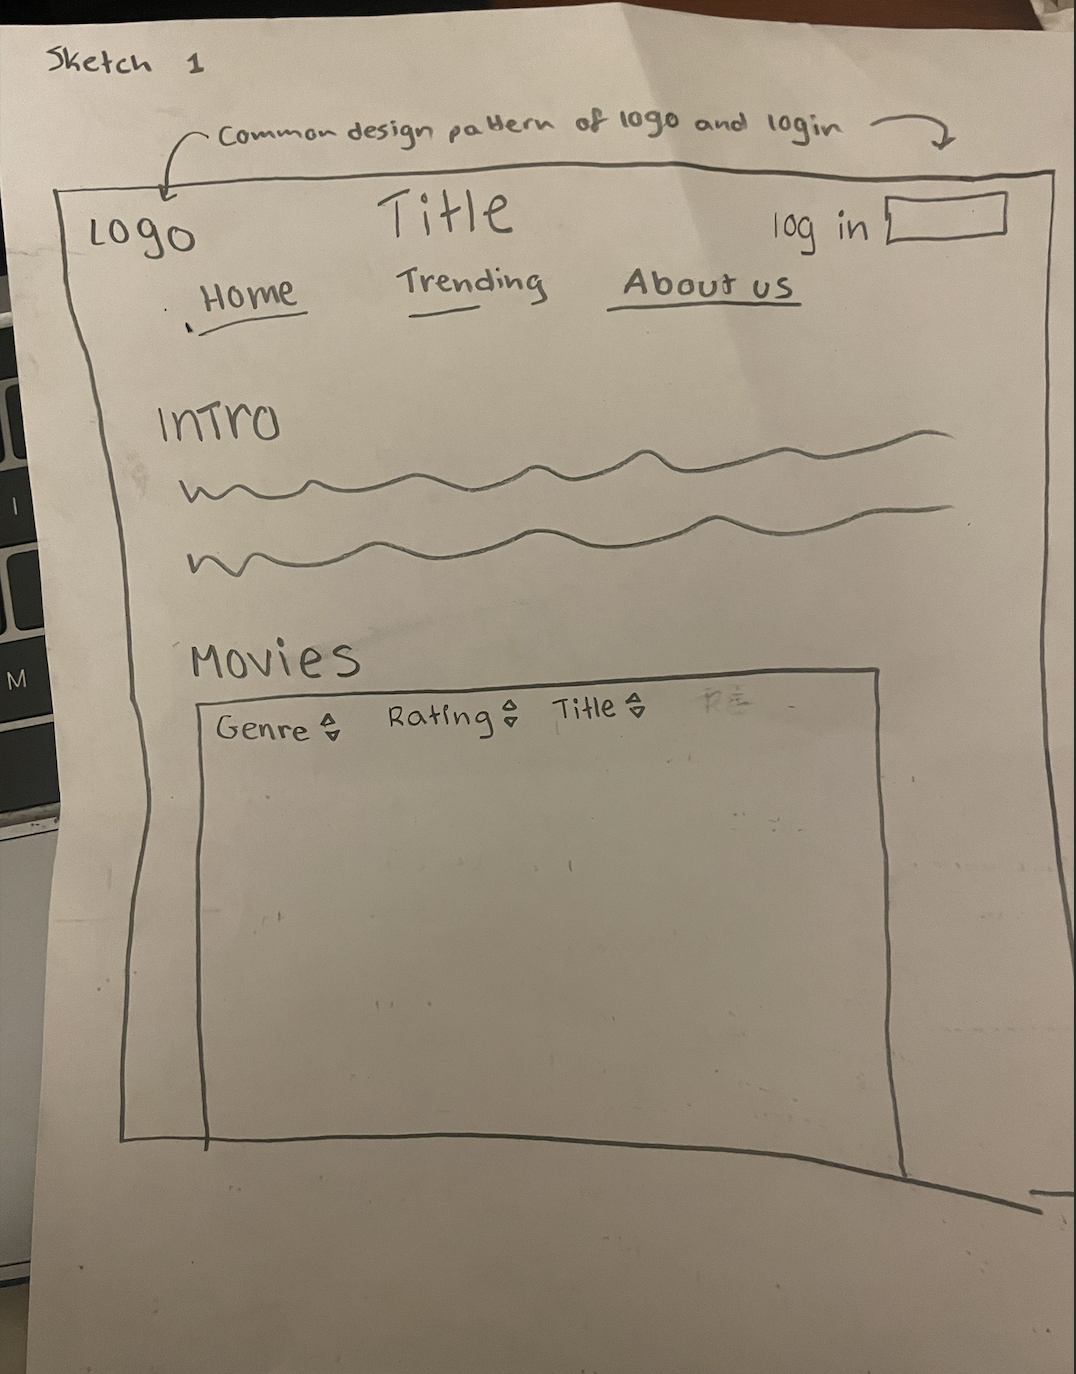 Sketch 1
Common design pattern of logo and login
Logo Title log in
Home Trending About us
Intro
Movies
Genre Rating Title
I
M